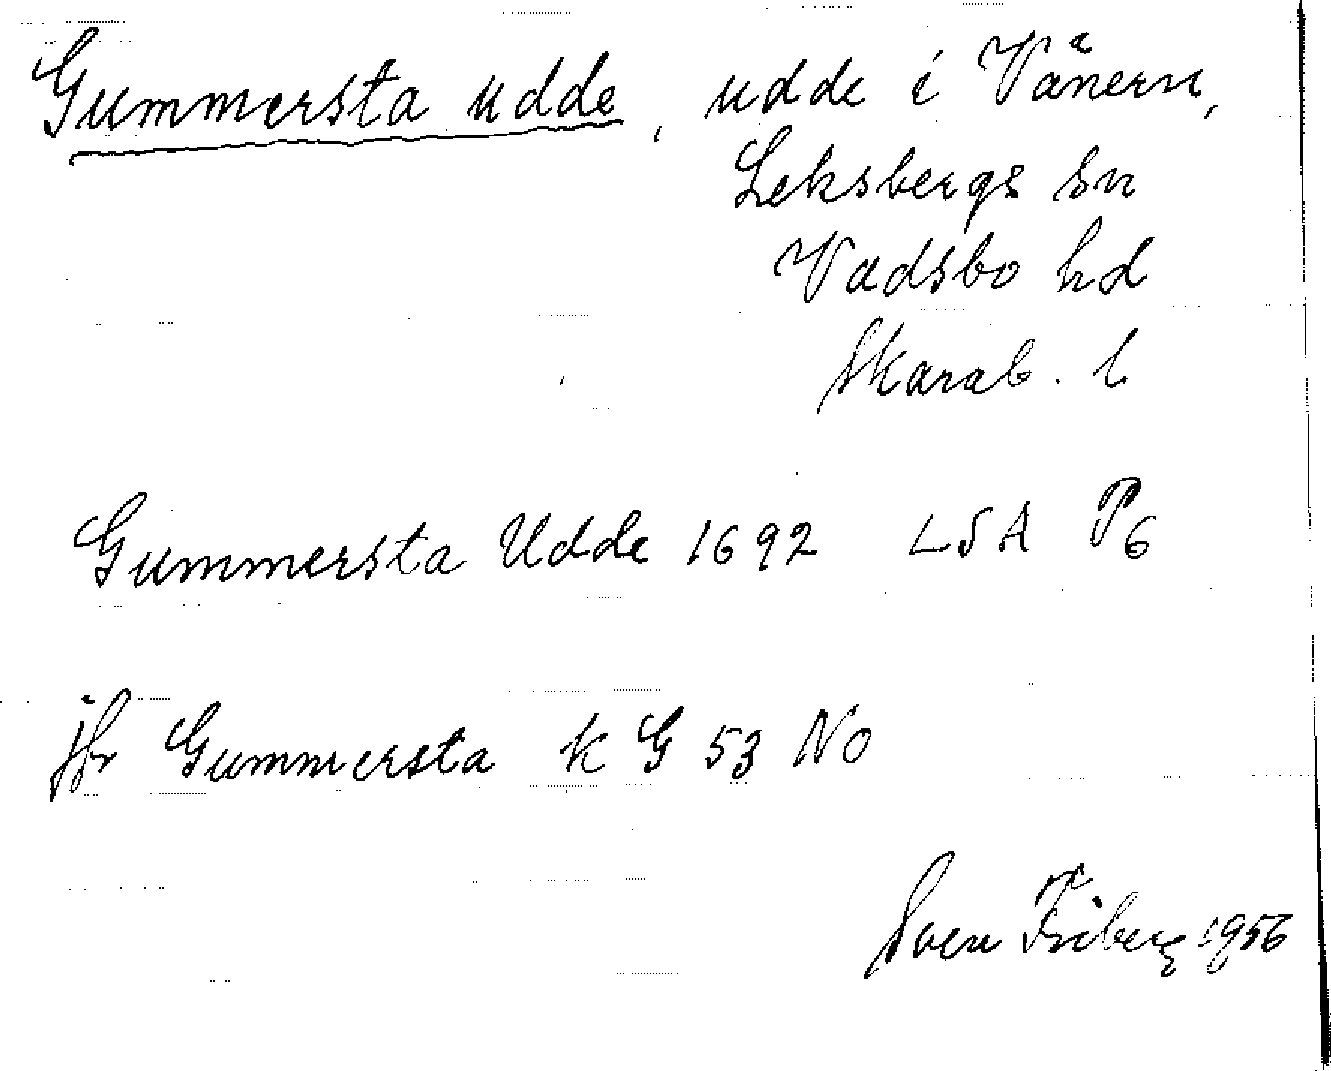 Gummersta udde, udde i Vänern,
Leksbergs sn
Vadsbo hd
Skarab. l
Gummersta Udde 1692 LSA P6
jfr Gummersta k G 53 No
Sven Friberg 1956